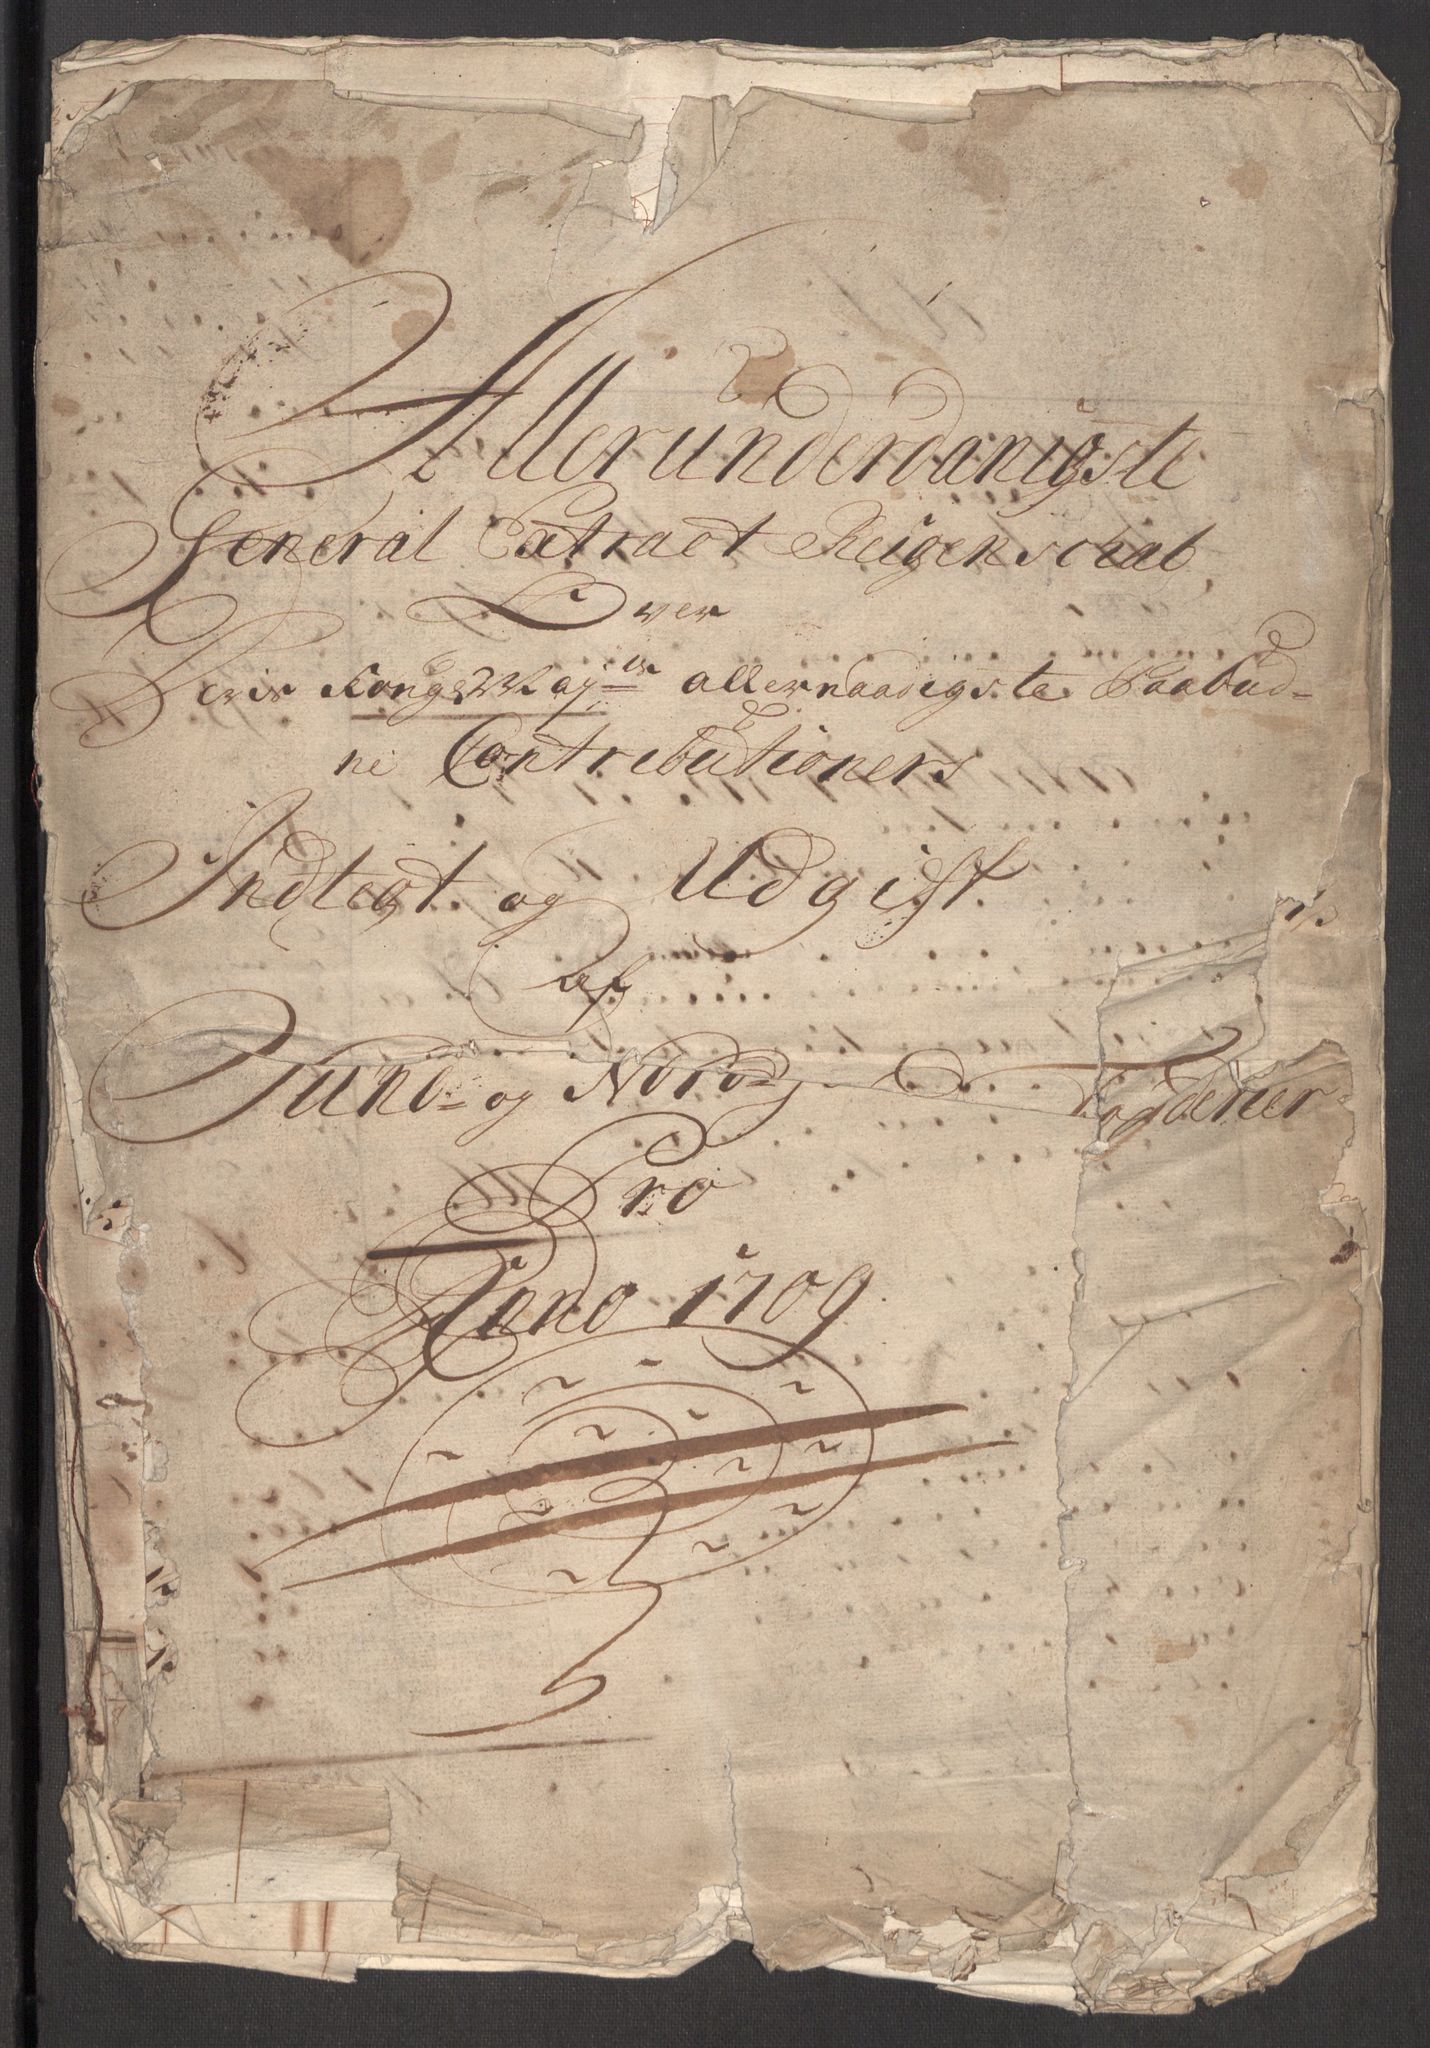 Allerunderdanigste
General Extract Reigenschab
Over
Deris Kongl. May:ts allernaadigste Paabud-
ne Contributioners
Indtegt og Udgift
Af
Sund- og Nord- Fogderier
Pro
Anno 1709